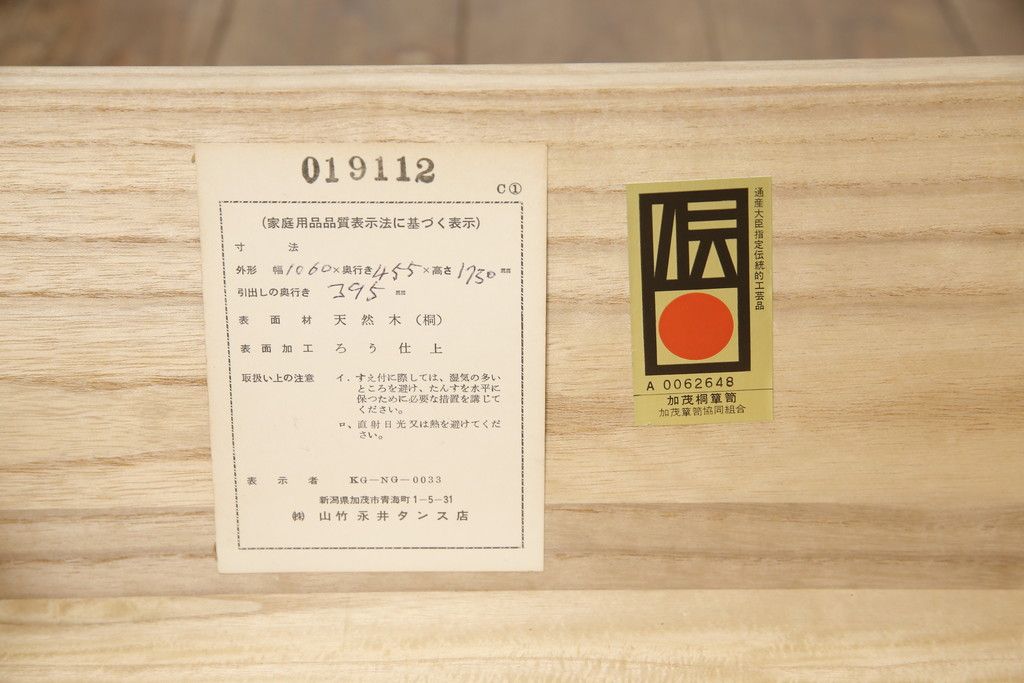 019112
C①
(家庭用品品質表示法に基づく表示)
寸法
外形 幅1060×奥行き455×高さ1730mm
引出しの奥行き 395mm
表面材 天然木(桐)
表面加工 ろう仕上
取扱い上の注意 イ. すえ付に際しては、湿気の多い
ところを避け、たんすを水平に
保つために必要な措置を講じて
ください。
ロ、直射日光又は熱を避けてくだ
さい。
表示者 KG-NG-0033
新潟県加茂市青海町1-5-31
㈱ 山竹永井タンス店
伝
通産大臣指定伝統的工芸品
A 0062648
加茂桐簞笥
加茂簞笥協同組合